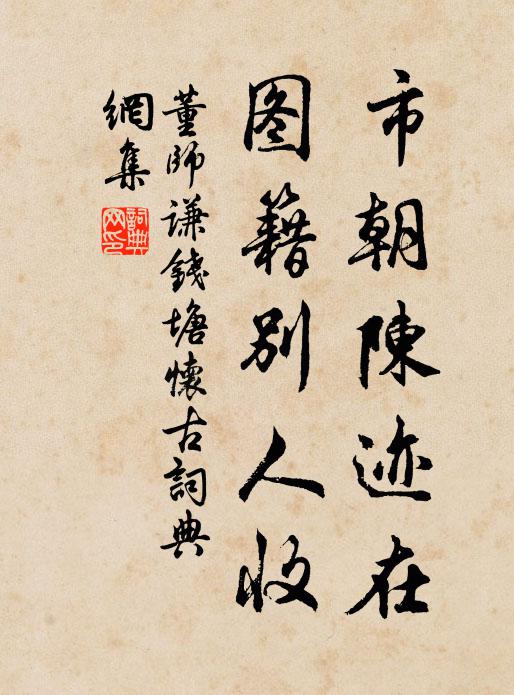 市朝陳迹在
图籍别人收
董師謙錢塘懷古詞典
網集
詞典網印